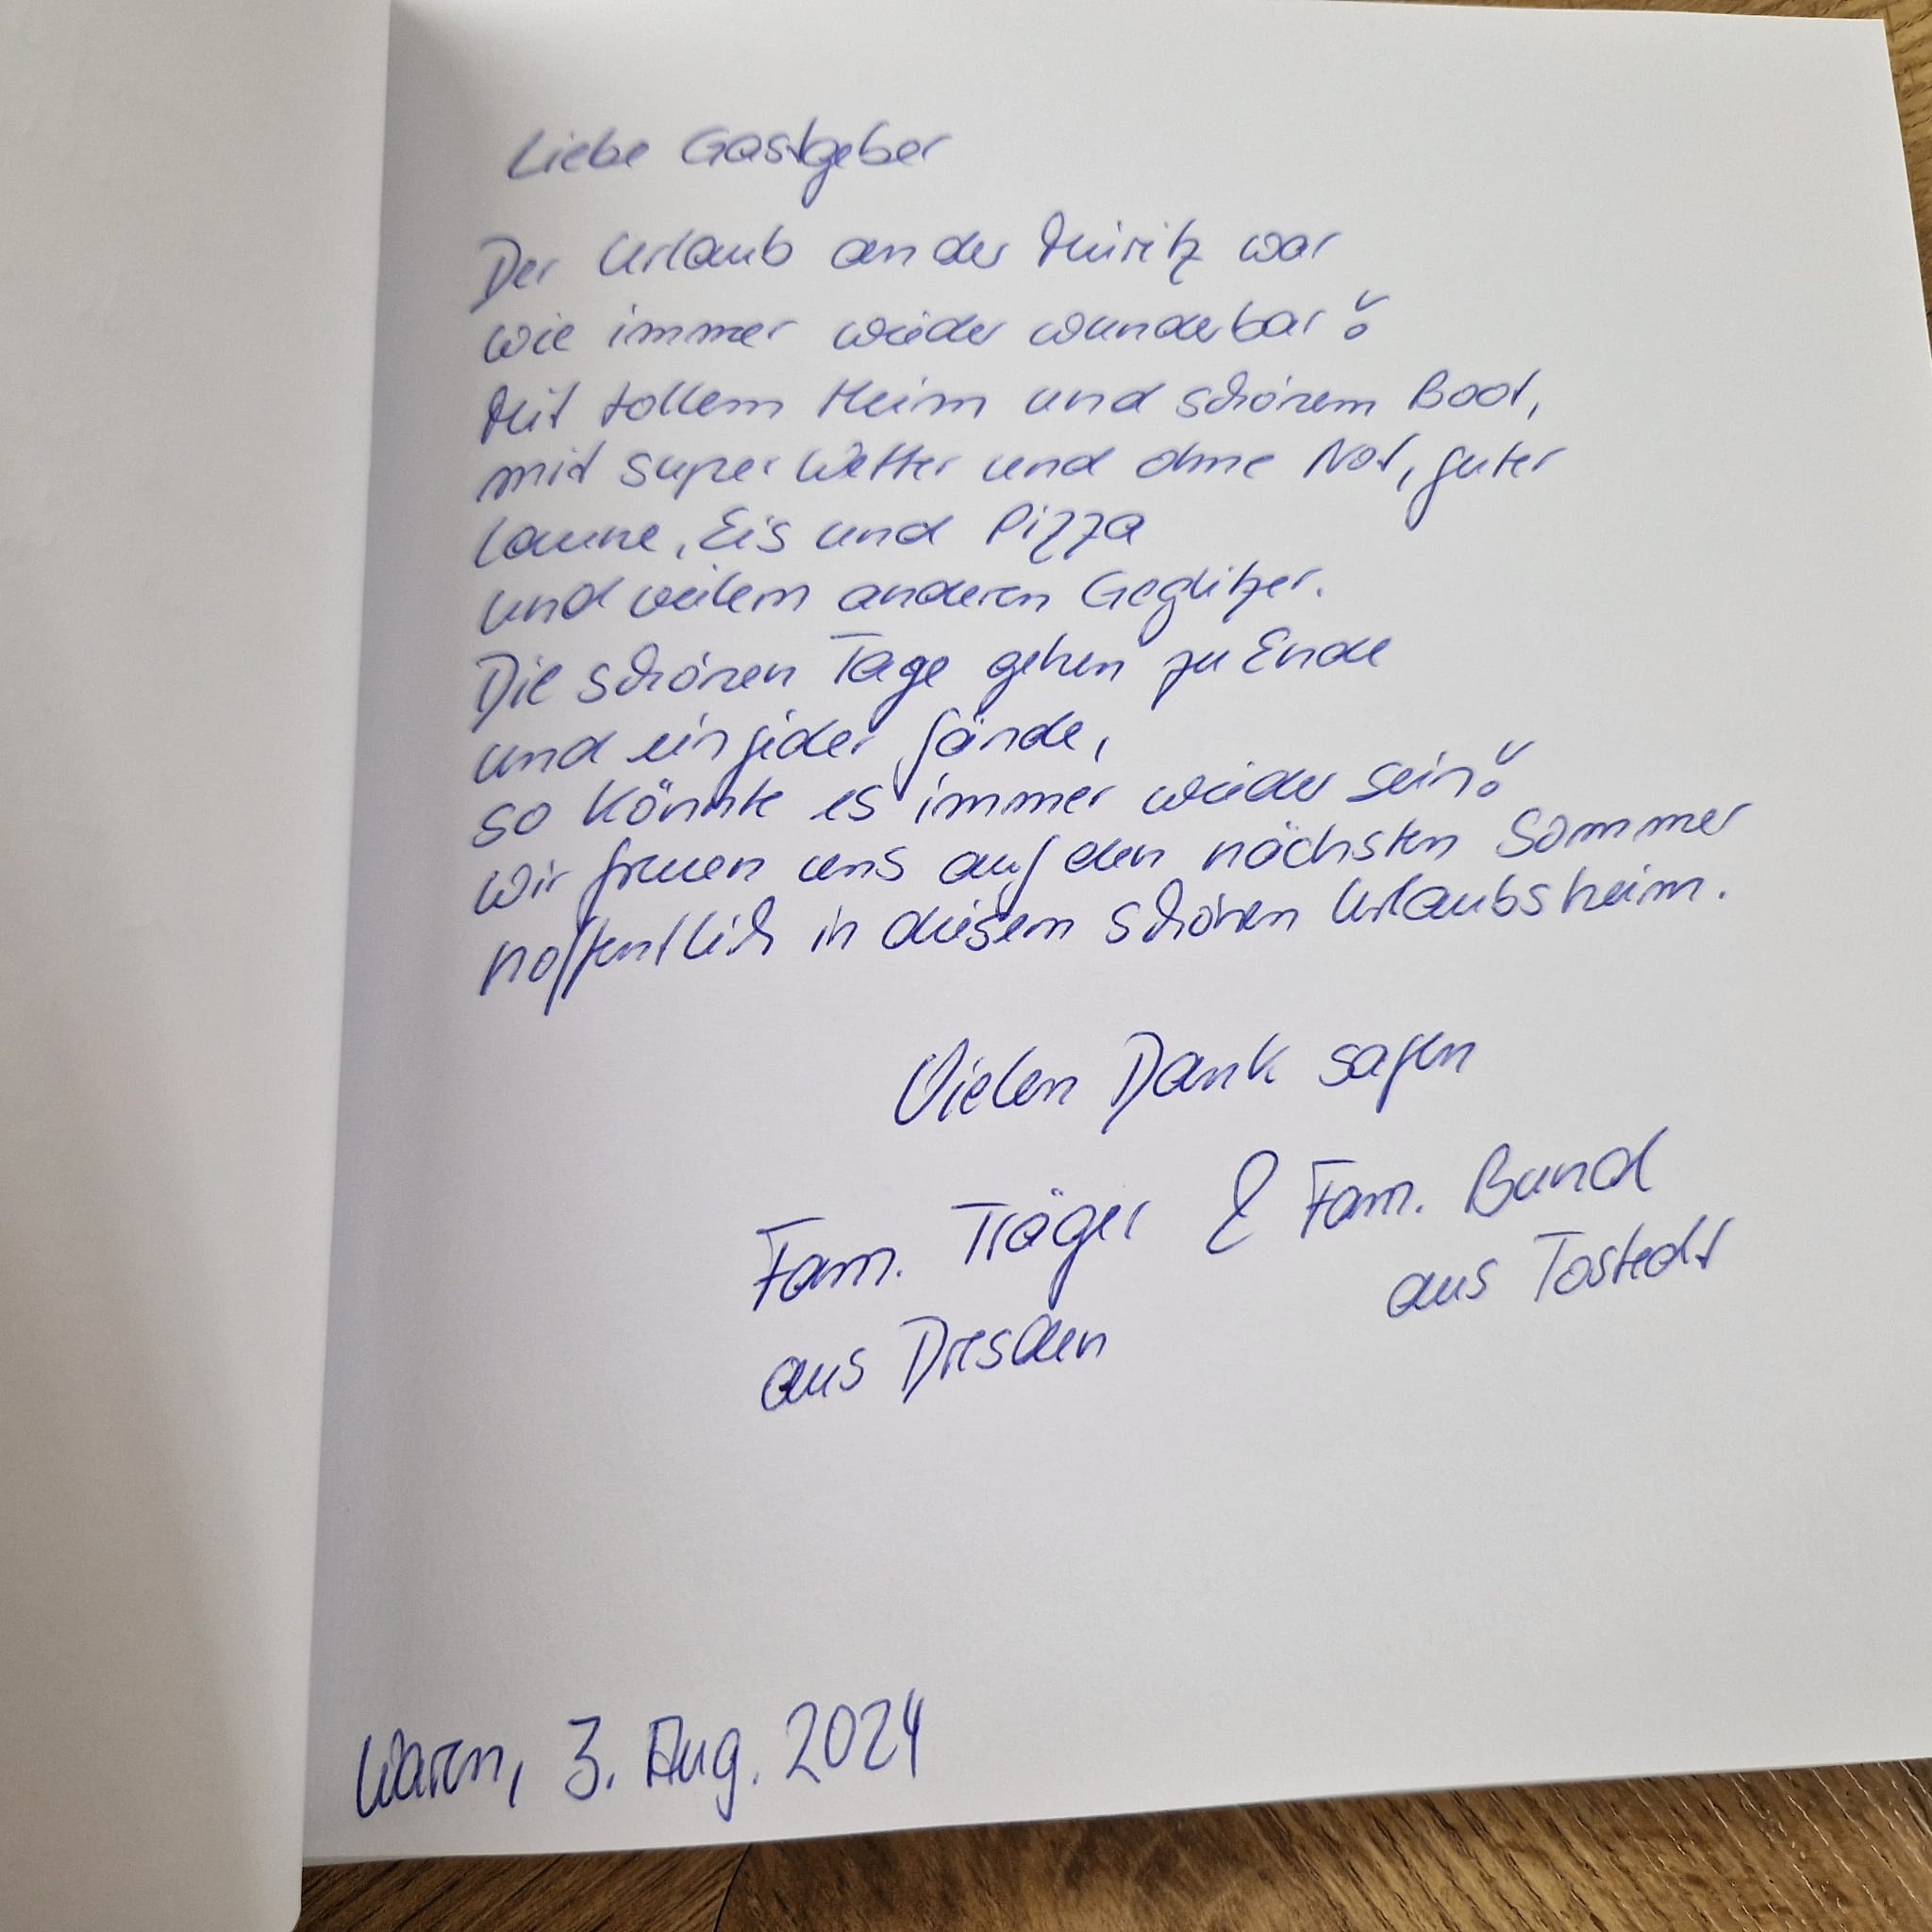 Liebe Gastgeber
Der Urlaub an der Müritz war
wie immer wieder wunderbar!
Mit tollem Heim und schönem Boot,
mit super Wetter und ohne Not, guter
Laune, Eis und Pizza
und vielem anderen Geglitzer.
Die schönen Tage gehen zu Ende
und ein jeder fände,
so könnte es immer wieder sein!
Wir freuen uns auf den nächsten Sommer
hoffentlich in diesem schönen Urlaubsheim.
Vielen Dank sagen
Fam. Träger & Fam. Bund
aus Dresden aus Tostedt
Waren, 3. Aug. 2024